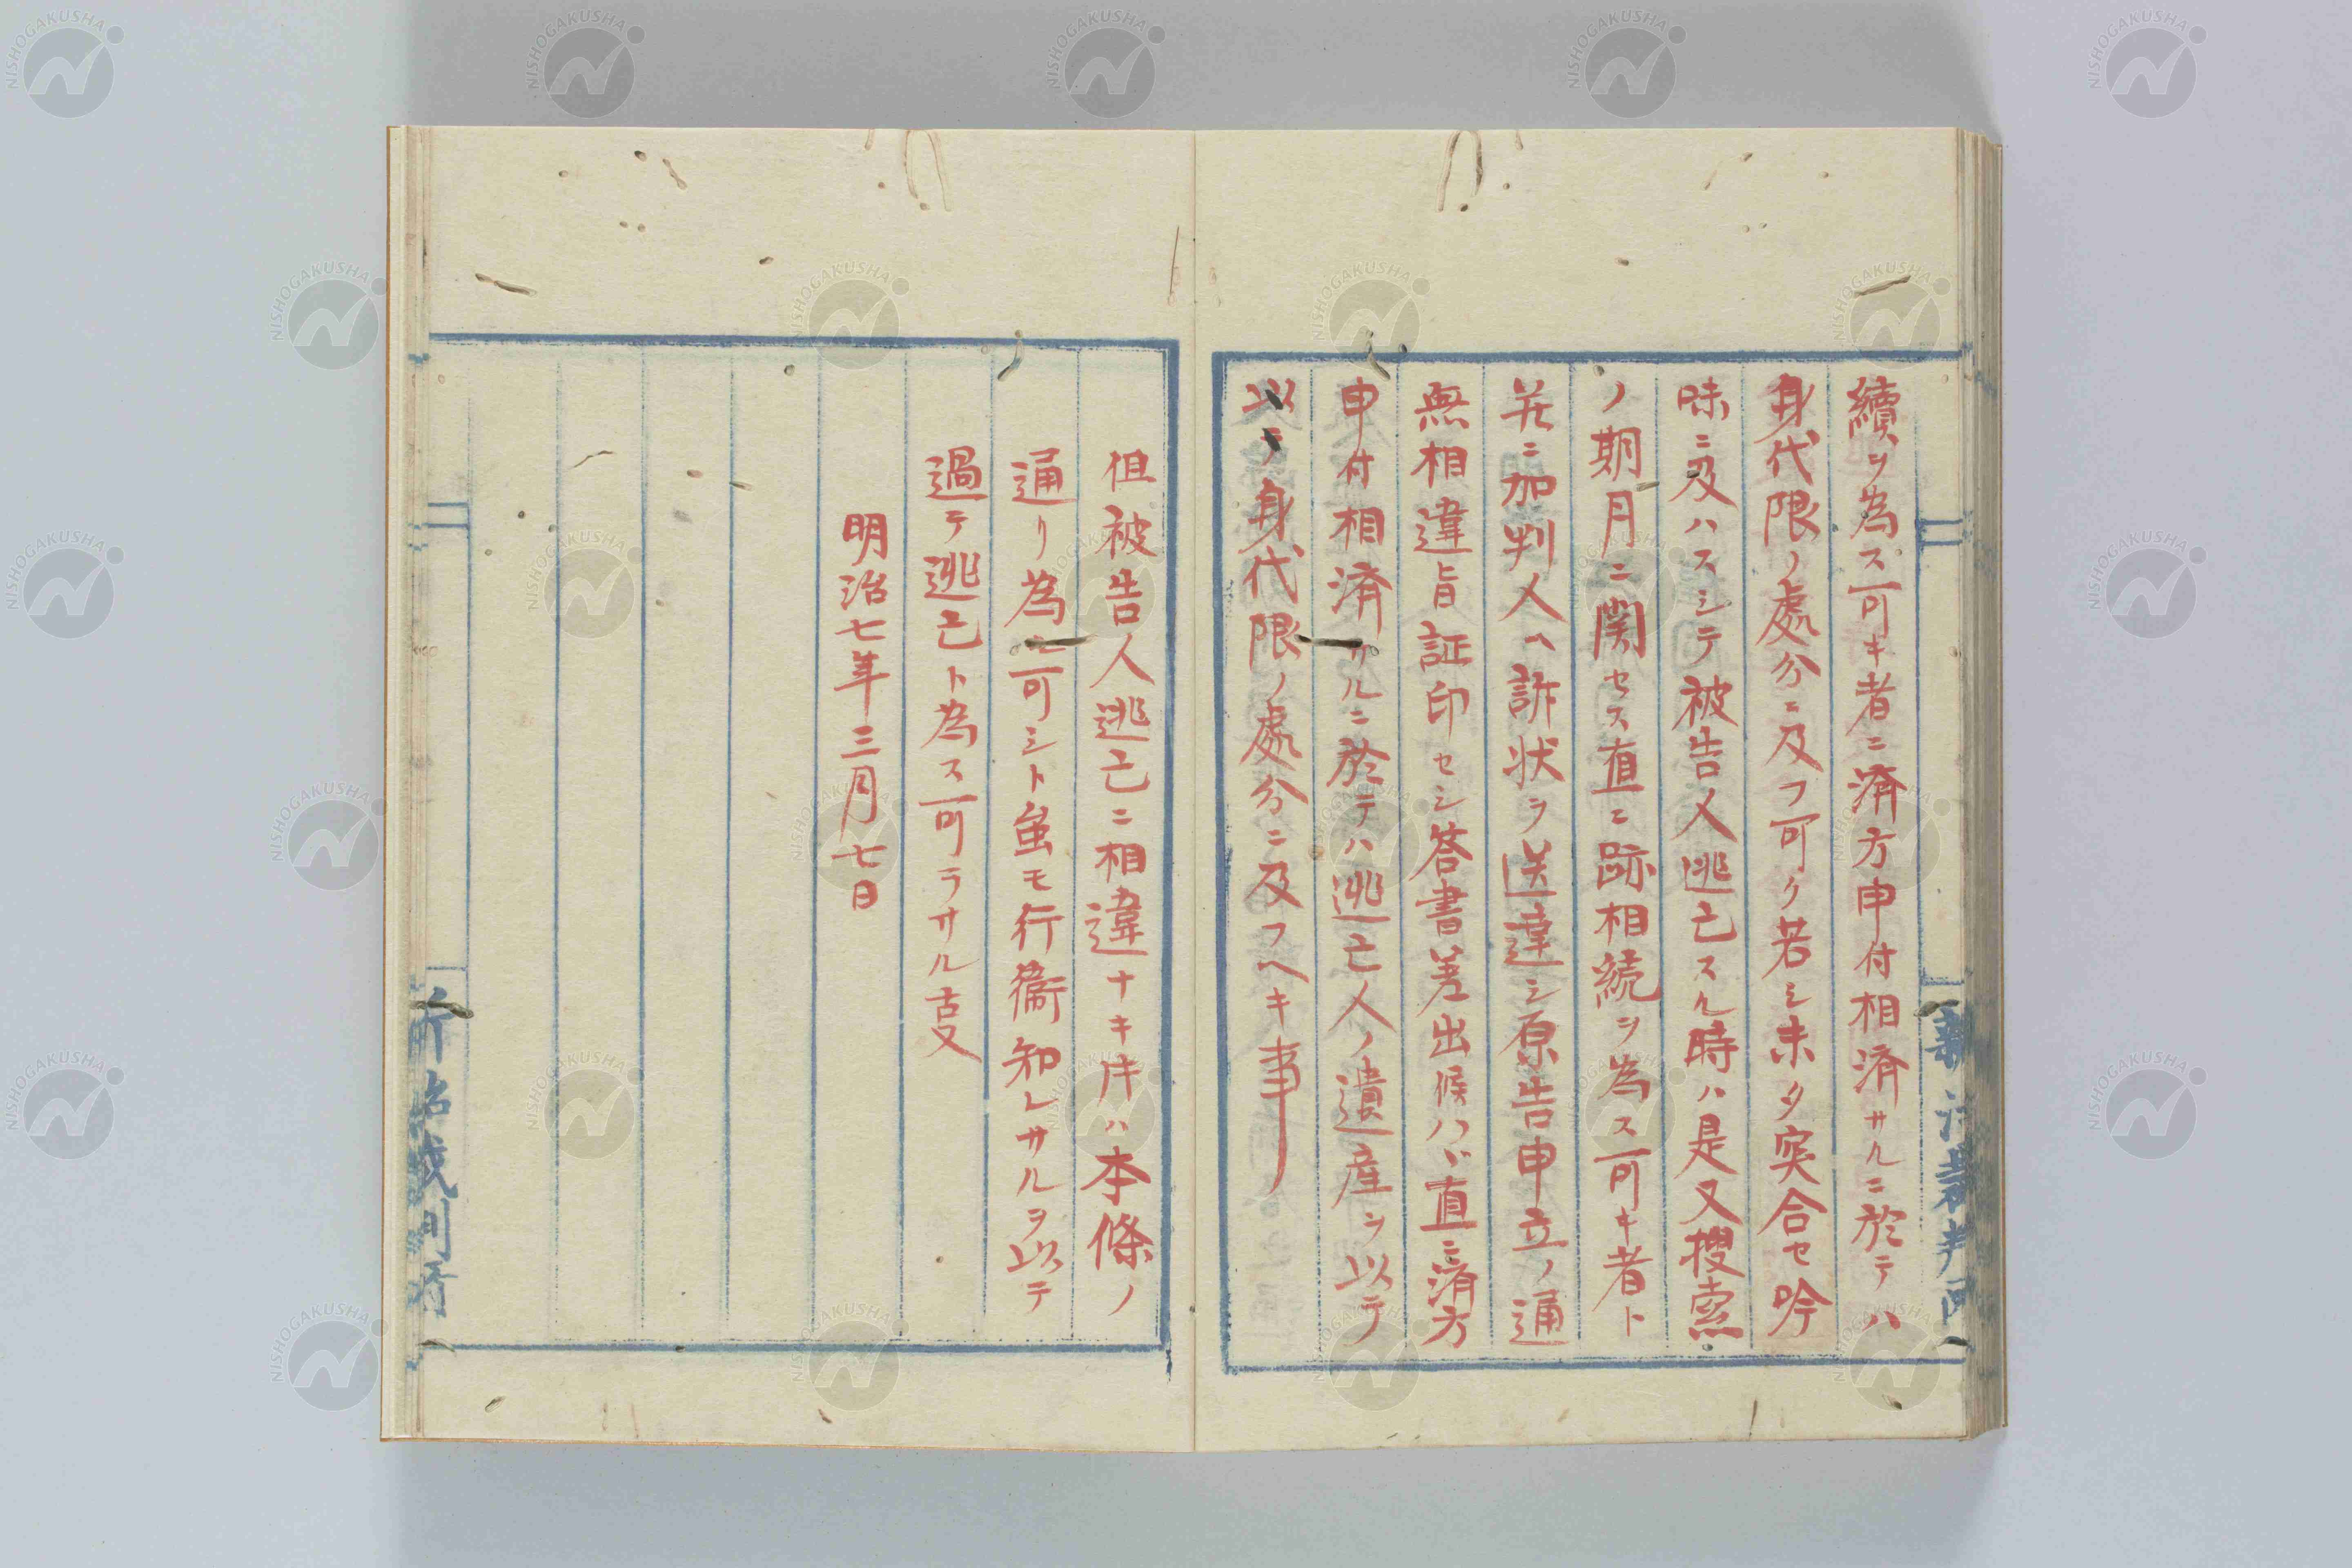 續ヲ為ス可キ者ニ済方申付相済サルニ於テハ
身代限ノ處分ニ及フ可ク若シ未タ突合セ吟
味ニ及ハスシテ被告人逃亡スル時ハ是又捜索
ノ期月ニ関セス直ニ跡相続ヲ為ス可キ者ト
并ニ加判人ヘ訴状ヲ送達シ原告申立ノ通
無相違旨証印セシ答書差出候ハヾ直ニ済方
申付相済サルニ於テハ逃亡人ノ遺産ヲ以テ
以テ身代限ノ處分ニ及フヘキ事
但被告人逃亡ニ相違ナキ片ハ本條ノ
通リ為ス可シト虽モ行衞知レサルヲ以テ
過テ逃亡ト為ス可ラサル叓
明治七年三月七日
新治裁判所
新治裁判所
NISHOGAKUSHA